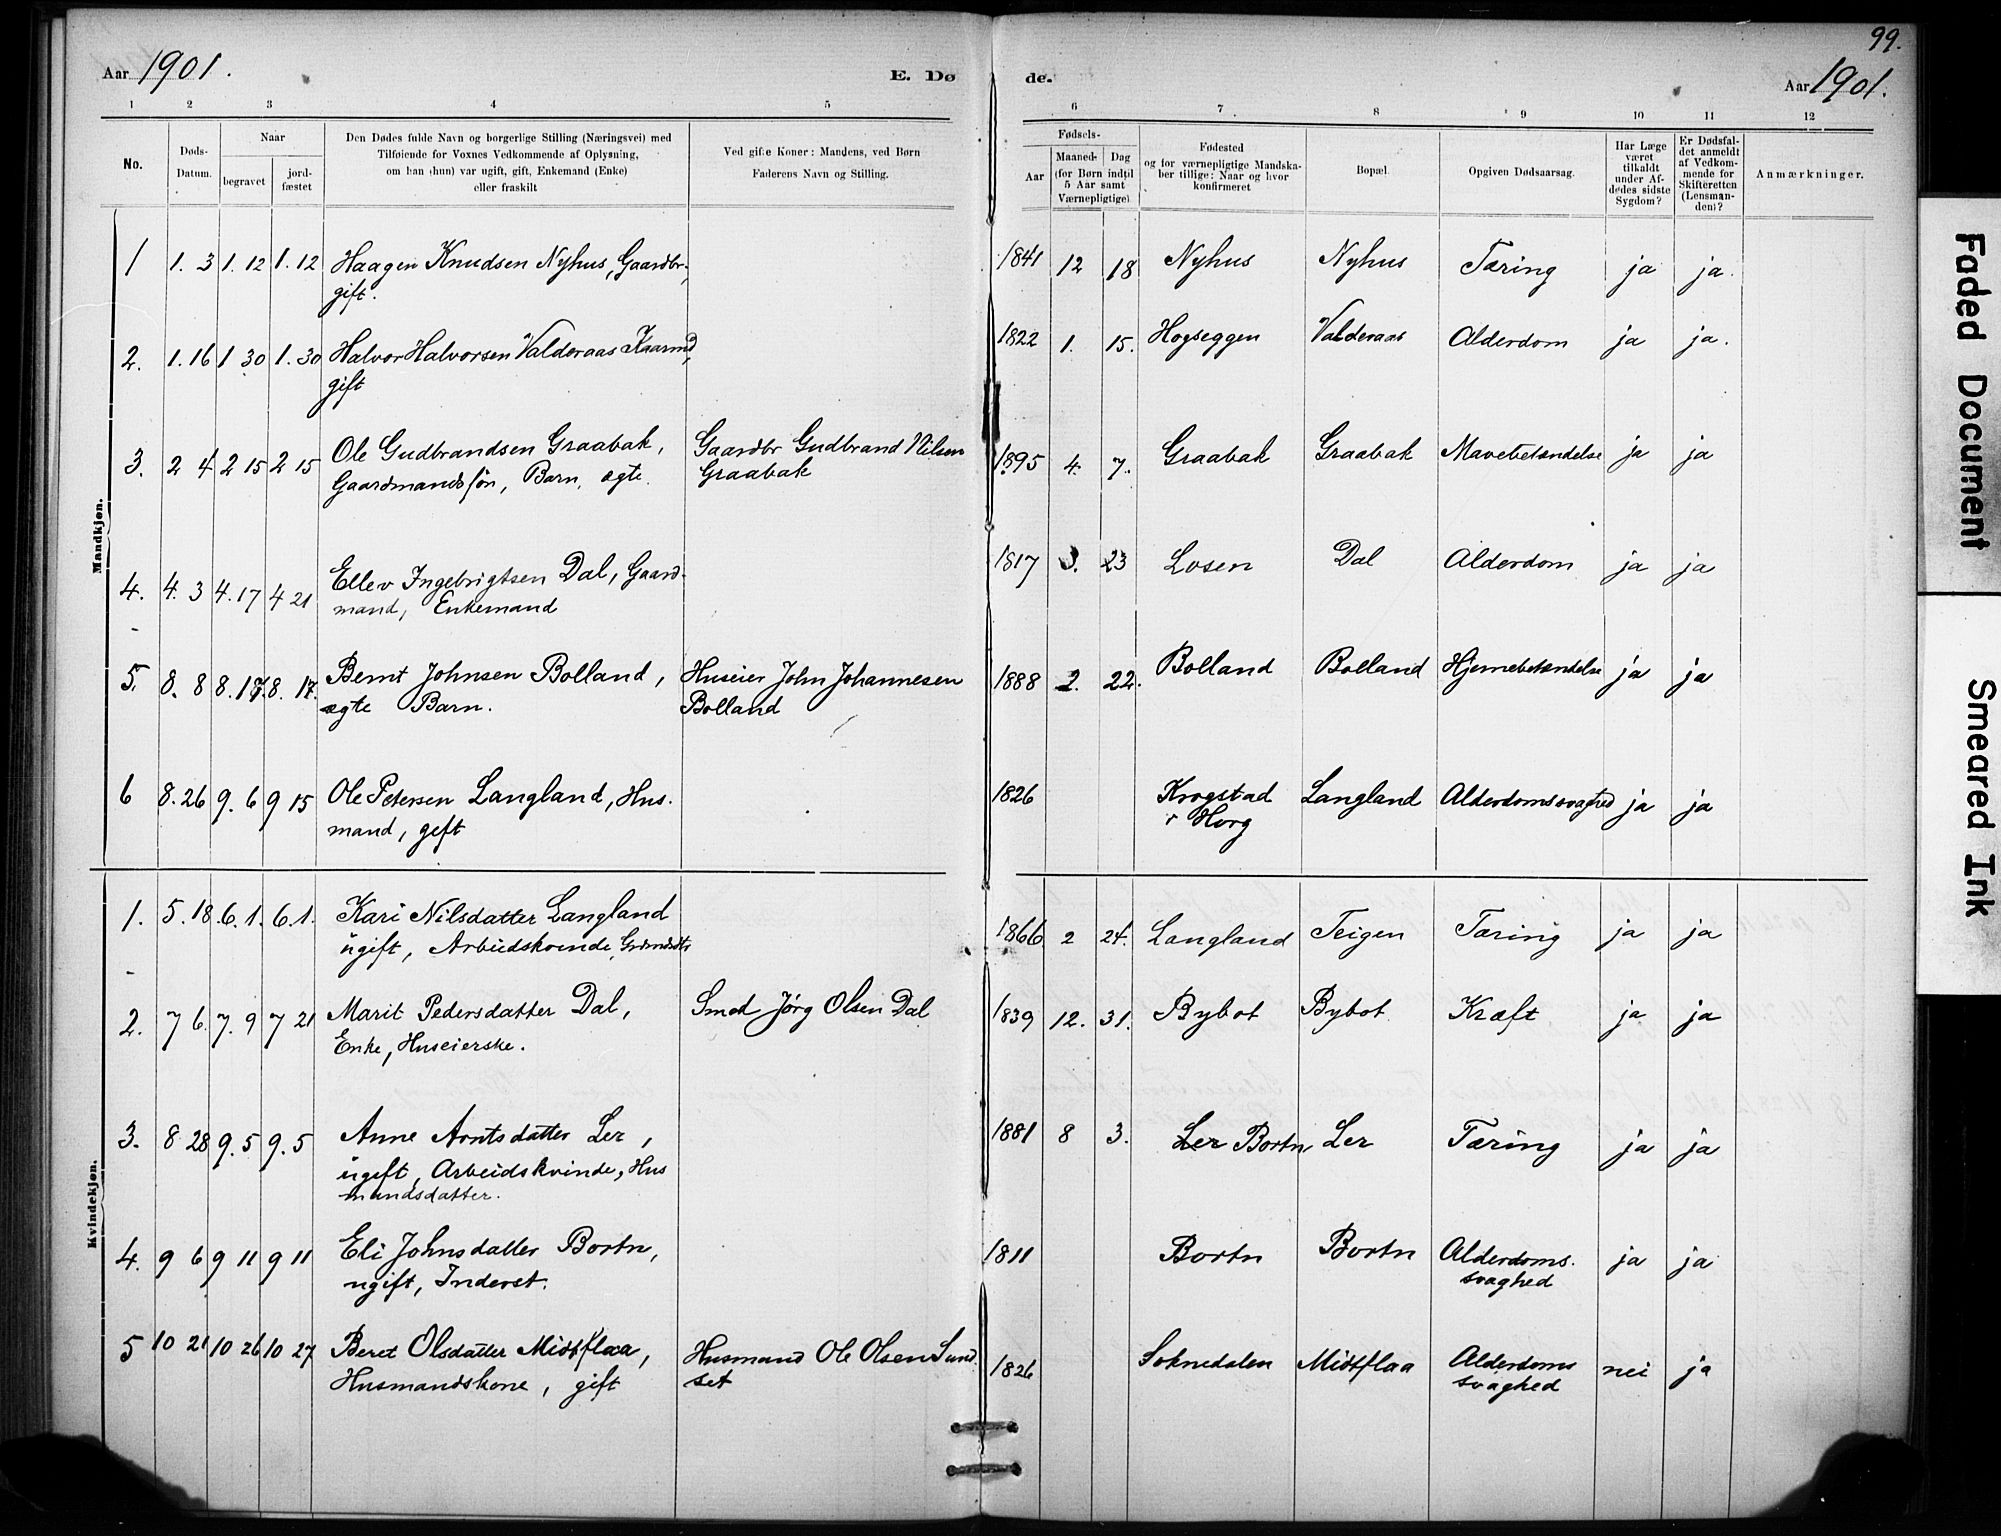 Aar 1901. E. Dø de. Aar 1901. 99.
1 2 3 4 5 6 7 8 9 10 11 12
No.
Døds-
Datum.
Naar
begravet
jord-
fæstet
Den Dødes fulde Navn og borgerlige Stilling (Næringsvei) med
Tilføiende for Voxnes Vedkommende af Oplysning,
om han (hun) var ugift, gift, Enkemand (Enke)
eller fraskilt
Ved gifte Koner: Mandens, ved Børn
Faderens Navn og Stilling.
Fødsels-
Aar
Maaned-
Dag
(for Børn indtil
5 Aar samt
Værnepligtige)
Fødested
og for værnepligtige Mandska-
ber tillige: Naar og hvor
konfirmeret
Bopæl.
Opgiven Dødsaarsag.
Har Læge
været
tilkaldt
under Af-
dødes sidste
Sygdom?
Er Dødsfal-
det anmeldt
af Vedkom-
mende for
Skifteretten
(Lensman-
den)?
Anmærkninger.
Mandkjøn.
1 1. 3 1. 12 1. 12 Haagen Knudsen Nyhus, Gaardbr., 1841 12 18 Nyhus Nyhus Tæring ja ja.
gift.
2. 1. 16 1 30 1. 30 Halvor Halvorsen Valderaas Kaarmd, 1822 1. 15. Hogseggen Valderaas Alderdom ja ja.
gift
3. 2 4 2 15 2 15 Ole Gudbrandsen Graabak, Gaardbr Gudbrand Nilsen 1895 4. 7. Graabak Graabak Mavebetændelse ja ja
Gaardmandssøn, Barn, ægte. Graabak
4. 4. 3 4. 17 4 21 Ellev Ingebrigtsen Dal, Gaard- 1817 3. 23 Losen Dal Alderdom ja ja
mand, Enkemand
5. 8. 8 8. 17. 8. 17. Bernt Johnsen Bolland, Huseier John Johannesen 1888 2. 22. Bolland Bolland Hjernebetændelse ja ja
ægte Barn. Bolland
6 8. 26 9. 6 9 15 Ole Petersen Langland, Hus- 1826 Krogstad Langland Alderdomssvaghed ja ja
mand, gift Horg
Kvindekjøn.
1. 5. 18. 6. 1. 6. 1. Kari Nilsdatter Langland 1866 2 24. Langland Teigen Tæring ja ja
ugift, Arbeidskvinde,
2. 7 6. 7. 9 7 21 Marit Pedersdatter Dal, Smed Jørg Olsen Dal 1839 12. 31. Bybot Bybot Kræft ja ja
Enke, Huseierske.
3. 8 28 9. 5 9. 5 Anne Arntsdatter Ler, 1881 8 3. Ler Bortn Ler Tæring ja ja
ugift, Arbeidskvinde, Hus
mandsdatter.
4. 9 6 9 11 9 11 Eli Johnsdatter Bortn, 1811 Bortn Bortn Alderdoms- ja ja
ugift, Inderst. svaghed
5 10 21 10 26 10 27 Beret Olsdatter Midtflaa, Husmand Ole Olsen Sund 1826 Soknedalen Midtflaa Alderdoms nei ja
Husmandskone, gift set svaghed
Faded Document
Smeared Ink